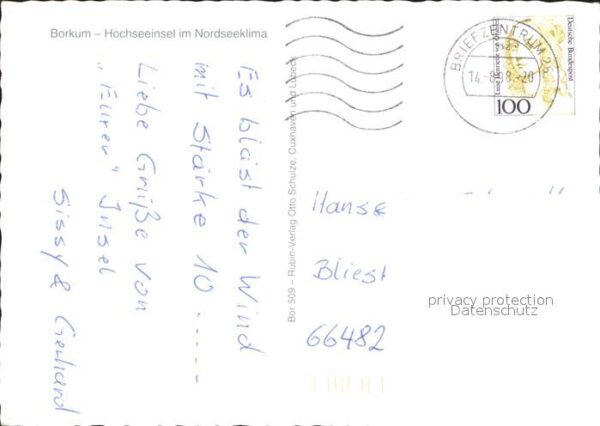 Borkum – Hochseeinsel im Nordseeklima
Es bläst der Wind
mit Stärke 10 -----
Liebe Grüße von
"Eurer" Insel
Sissy & Gerhard
Bor 509 – Rubin-Verlag Otto Schulze, Cuxhaven und Lübeck
BRIEFZENTRUM 26
14.-8.98.-20
Deutsche Bundespost
100
Hanse
Bliest
66482
privacy protection
Datenschutz